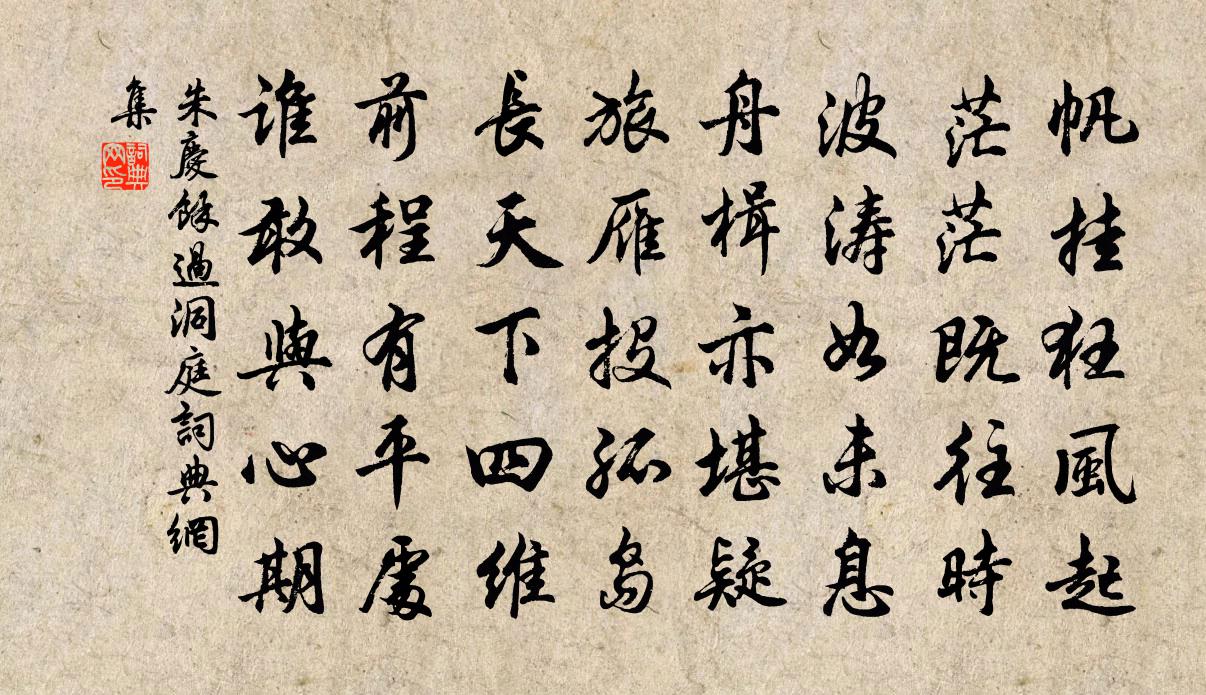 帆挂狂風起
茫茫既往時
波涛如未息
舟楫亦堪疑
旅雁投孤島
長天下四維
前程有平處
谁敢與心期
朱慶餘過洞庭詞典網
集
詞典網印